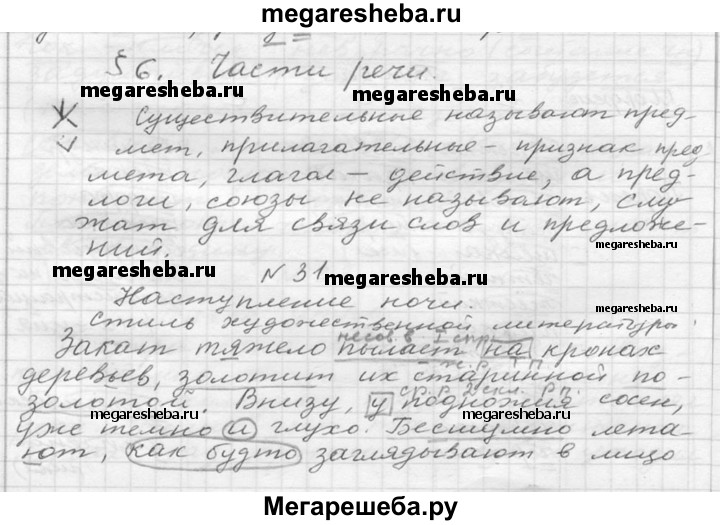 megaresheba.ru
§6. Части речи.
megaresheba.ru megaresheba.ru
Существительные называют пред-
мет, прилагательные – признак пред
мета, глагол – действие, а пред-
логи, союзы не называют, слу
жат для связи слов и предложе-
ний.
megaresheba.ru
N 31
megaresheba.ru megaresheba.ru
Наступление ночи.
megaresheba.ru
Стиль художественной литературы.
несов. в. I спр.
Закат тяжело пылает на кронах
ж. р. Т. п.
деревьев, золотит их старинной по-
ср. р. 2 скл. Р. п.
золотой. Внизу, у подножия сосен,
megaresheba.ru megaresheba.ru
уже темно и глухо. Бесшумно лета-
ют, как будто заглядывают в лицо
Мегарешеба.ру